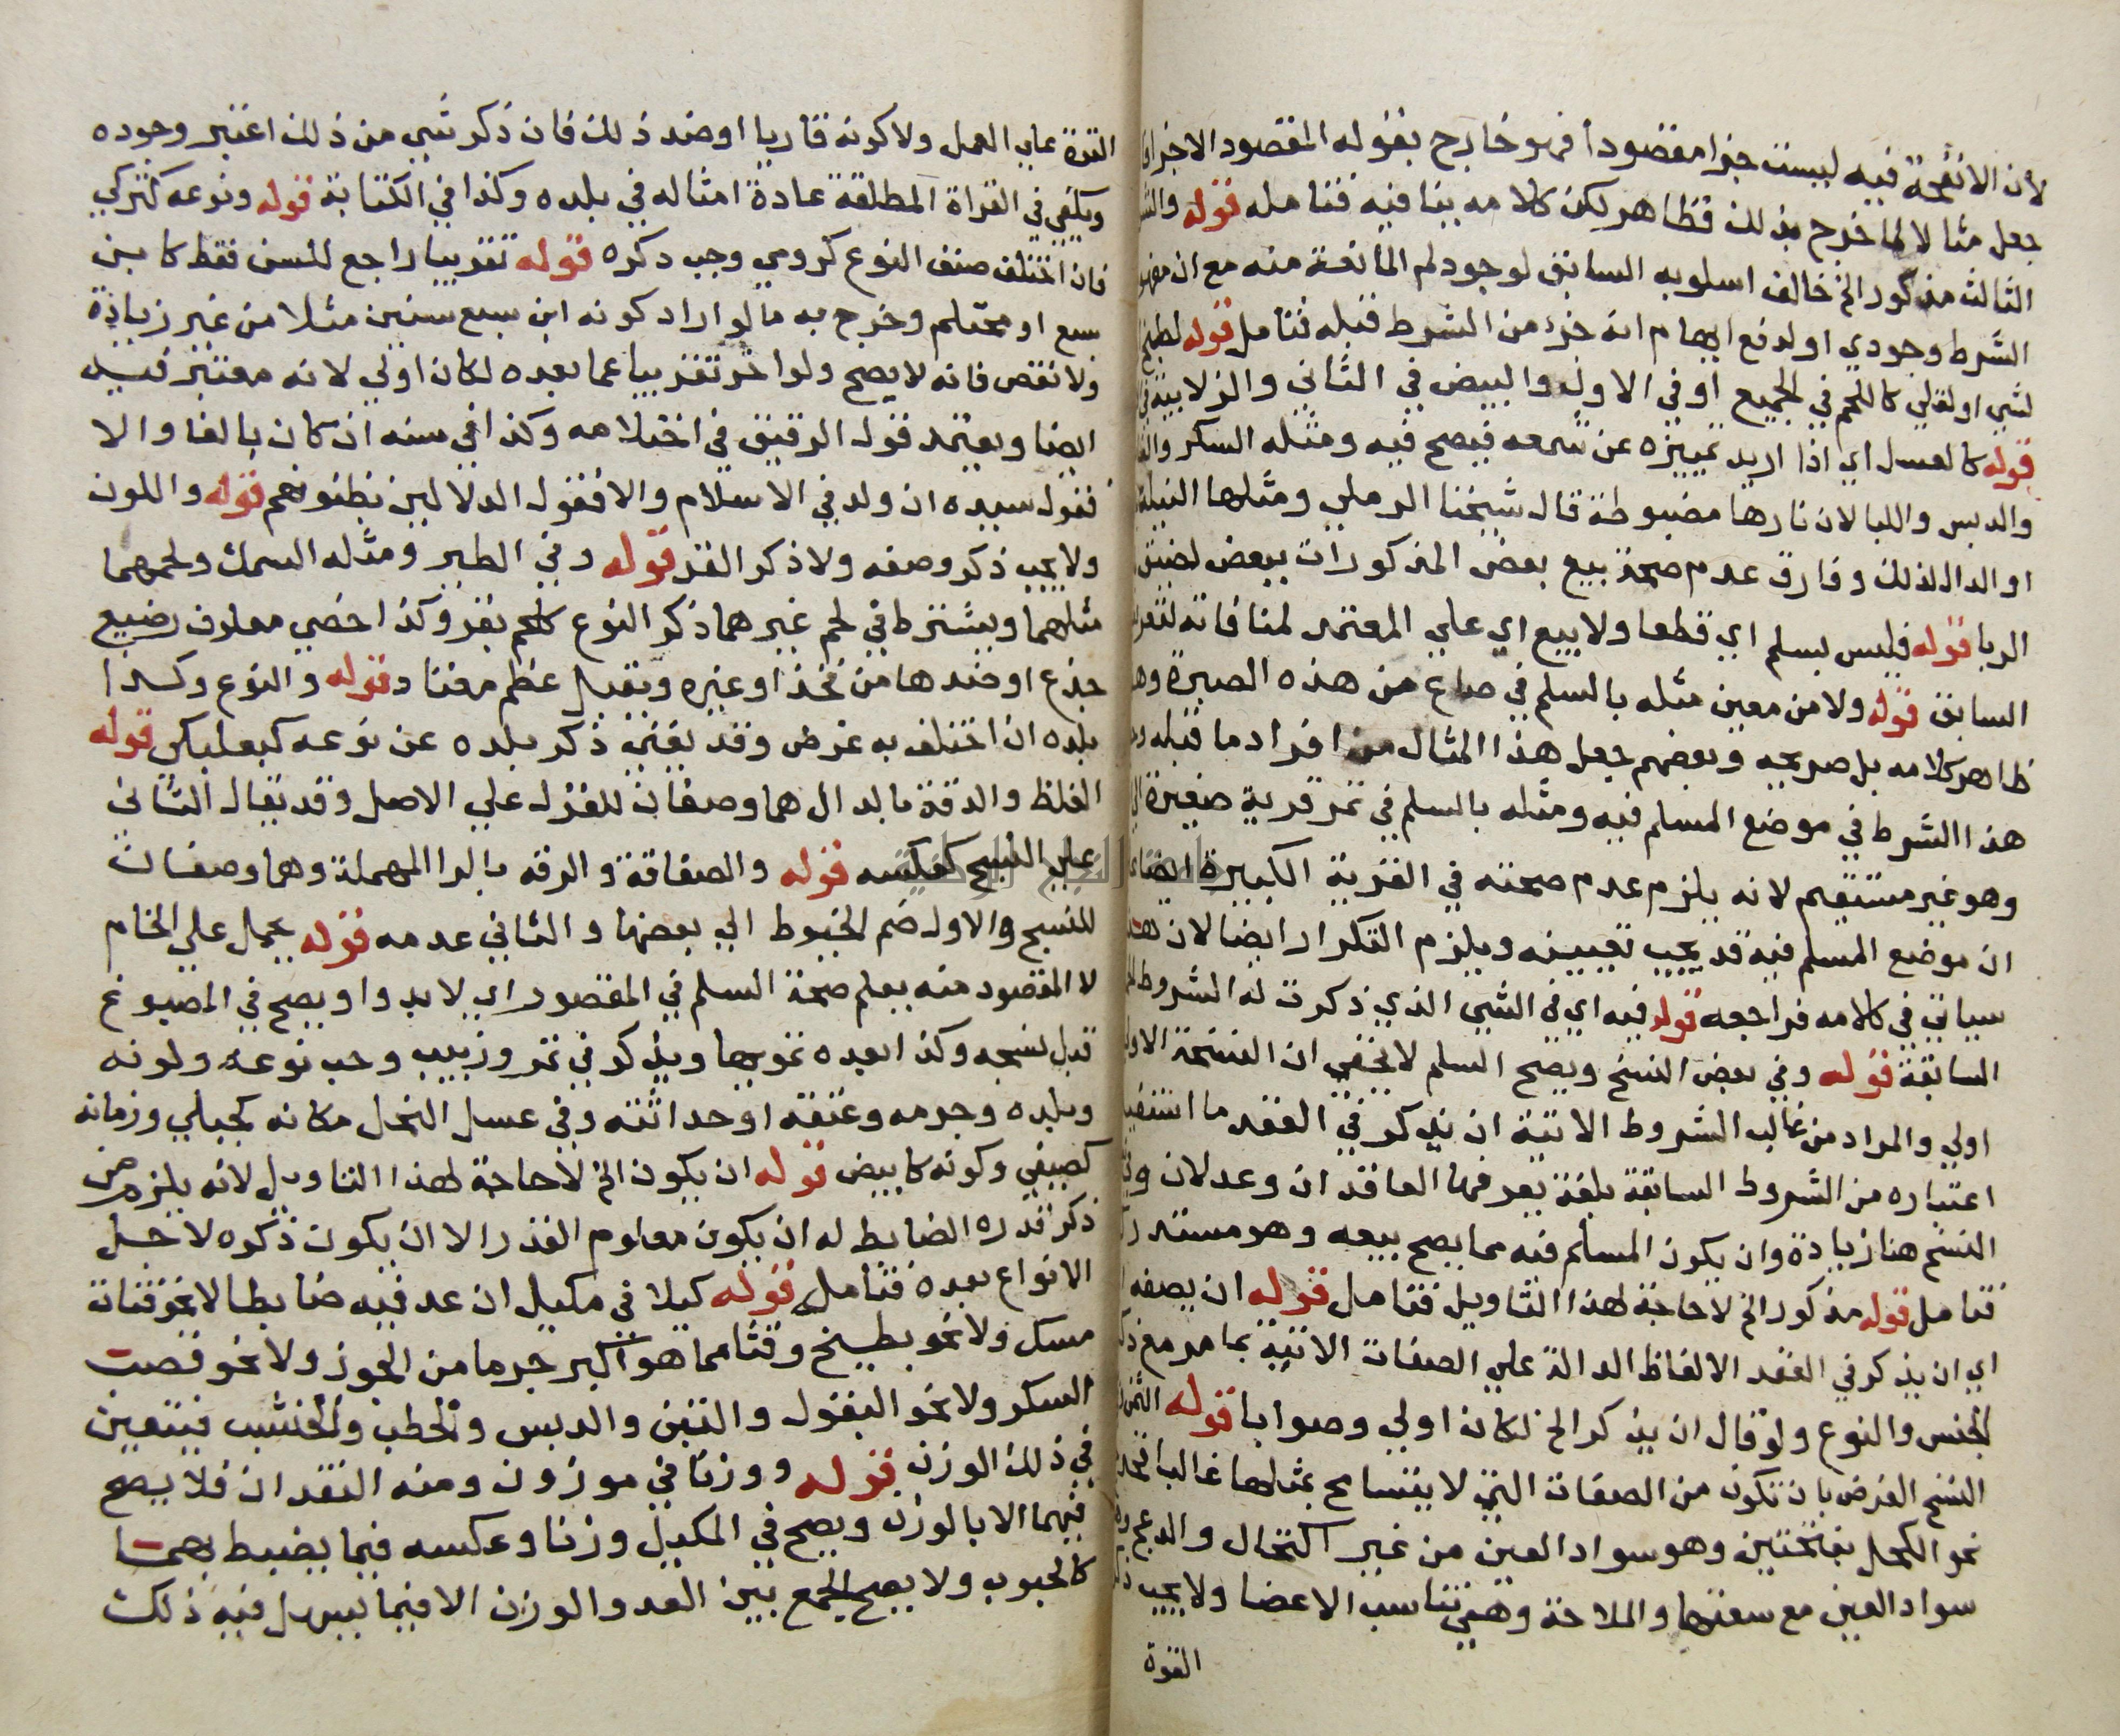 لأن الانفحة فيه ليست جزا مقصودا فهو خارج بقوله المقصود الاجزا
جعل مثالا لما خرج بذلك فظاهر لكن كلامه ينافيه فتامله قوله
الثالث مذكور الخ خالف اسلوبه السابق لوجود لم المانعة منه مع ان
الشرط وجودي او لدفع ايهام انه جزء من الشرط قبله فتامل قوله لطبخ
لشي او لقلي كاللحم في الجميع او في الاول والبيض في الثاني والزلابية
قوله كالعسل اي اذا اريد تمييزه عن شمعه فيصح فيه ومثله السكر
والدبس واللبا لان نارها مضبوطة قال شيخنا الرملي ومثلها النيلة
او الدال لذلك وفارق عدم صحة بيع بعض المذكورات ببعض لضيق
الربا قوله فليس بسلم اي قطعا ولا بيع اي علي المعتمد لمنافاته
السابق قوله ولا من معين مثله بالسلم في صاع من هذه الصبرة
ظاهر كلامه بل صريحه وبعضهم جعل هذا المثال من افراد ما قبله
هذا الشرط في موضع المسلم فيه ومثله بالسلم في تمر قرية صغيرة
وهو غير مستقيم لانه يلزم عدم صحته في القرية الكبيرة ايضا
ان موضع المسلم فيه قد يجب تعيينه ويلزم التكرار ايضا لان هذا
سياتي في كلامه فراجعه قوله فيه اي في الشي الذي ذكرت له الشروط
السابقة قوله وفي بعض النسخ ويصح السلم لا يخفي ان النسخة
اولي والمراد من غالب الشروط الاتية ان يذكر في العقد ما
اعتباره من الشروط السابقة بلغة يعرفها العاقدان وعدلان
النسخ هنا زيادة وان يكون المسلم فيه مما يصح بيعه وهو مستدرك
فتامل قوله مذكور الخ لا حاجة لهذا التاويل فتامل قوله ان يصفه
اي ان يذكر في العقد الالفاظ الدالة علي الصفات الاتية بما مر مع
الجنس والنوع ولو قال ان يذكر الخ لكان اولي وصوابا قوله الثمن
النسخ الغرض بان تكون من الصفات التي لا يتسامح بمثلها غالبا
نحو الكحل بفتحتين وهو سواد العين من غير اكتحال والدعج
سواد العين مع سعتها والملاحة وهي تناسب الاعضا ولا يجب
القوة
القوة علي العمل ولا كونه قاريا او ضد ذلك فان ذكر شي من ذلك اعتبر وجوده
ويكفي في القراة المطلقة عادة امثاله في بلده وكذا في الكتابة قوله ونوعه كتركي
فان اختلف صنف النوع كرومي وجب ذكره قوله تقريبا راجع للسن فقط كابن
سبع او محتلم وخرج به ما لو اراد كونه ابن سبع سنين مثلا من غير زيادة
ولا نقص فانه لا يصح ولو اخر تقريبا عما بعده لكان اولي لانه معتبر فيه
ايضا ويعتمد قول الرقيق في احتلامه وكذا في سنه ان كان بالغا والا
فقول سيده ان ولد في الاسلام والا فقول الدلالين بظنونهم قوله واللون
ولا يجب ذكر وصفه ولا ذكر القد قوله وفي الطير ومثله السمك ولحمهما
مثلهما ويشترط في لحم غيرهما ذكر النوع كلحم بقر وكذا خصي معلوف رضيع
جذع او ضدها من فخذ او غيره ويقبل عظم معتاد قوله والنوع وكذا
بلده ان اختلف به غرض وقد يغني ذكر بلده عن نوعه كبعلبكي قوله
الغلظ والدقة بالدال هما وصفان للغزل علي الاصل وقد يقال الثاني
علي النسج كعكسه قوله والصفاقة والرقه بالرا المهملة وهما وصفان
للنسج والاول ضم الخيوط الي بعضها والثاني عدمه قوله يحمل علي الخام
لا المقصود منه يعلم صحة السلم في المقصور اي لابدوا ويصح في المصبوغ
قبل نسجه وكذا بعده نحويها ويذكر في تمر وزبيب وحب نوعه ولونه
وبلده وجرمه وعتقه او حداثته وفي عسل النحل مكانه كجبلي وزمانه
كصيفي وكونه كابيض قوله ان يكون الخ لا حاجة لهذا التاويل لانه يلزم من
ذكر قدره الضابط له ان يكون معلوم القدر الا ان يكون ذكره لاجل
الانواع بعده فتامل قوله كيلا في مكيل ان عد فيه ضابطا لا نحو فتات
مسك ولا نحو بطيخ وقثا مما هو اكبر جرما من الجوز ولا نحو قصب
السكر ولا نحو البقول والتبن والدبس والحطب والخشب فيتعين
في ذلك الوزن قوله ووزنا في موزون ومنه النقدان فلا يصح
فيهما الا بالوزن ويصح في المكيل وزنا وعكسه فيما يضبط بهما
كالحبوب ولا يصح الجمع بين العد والوزن الا فيما يسهل فيه ذلك